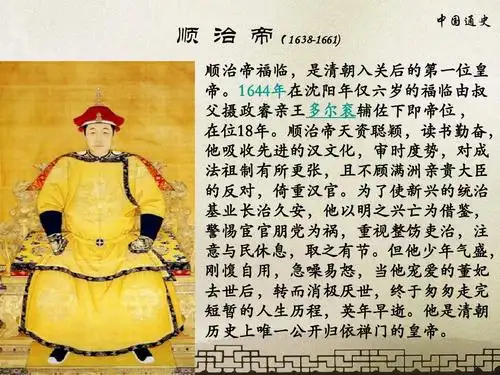 中国通史
顺治帝（1638-1661)
顺治帝福临，是清朝入关后的第一位皇
帝。1644年在沈阳年仅六岁的福临由叔
父摄政睿亲王多尔衮辅佐下即帝位，
在位18年。顺治帝天资聪颖，读书勤奋，
他吸收先进的汉文化，审时度势，对成
法祖制有所更张，且不顾满洲亲贵大臣
的反对，倚重汉官。为了使新兴的统治
基业长治久安，他以明之兴亡为借鉴，
警惕宦官朋党为祸，重视整饬吏治，注
意与民休息，取之有节。但他少年气盛，
刚愎自用，急噪易怒，当他宠爱的董妃
去世后，转而消极厌世，终于匆匆走完
短暂的人生历程，英年早逝。他是清朝
历史上唯一公开归依禅门的皇帝。